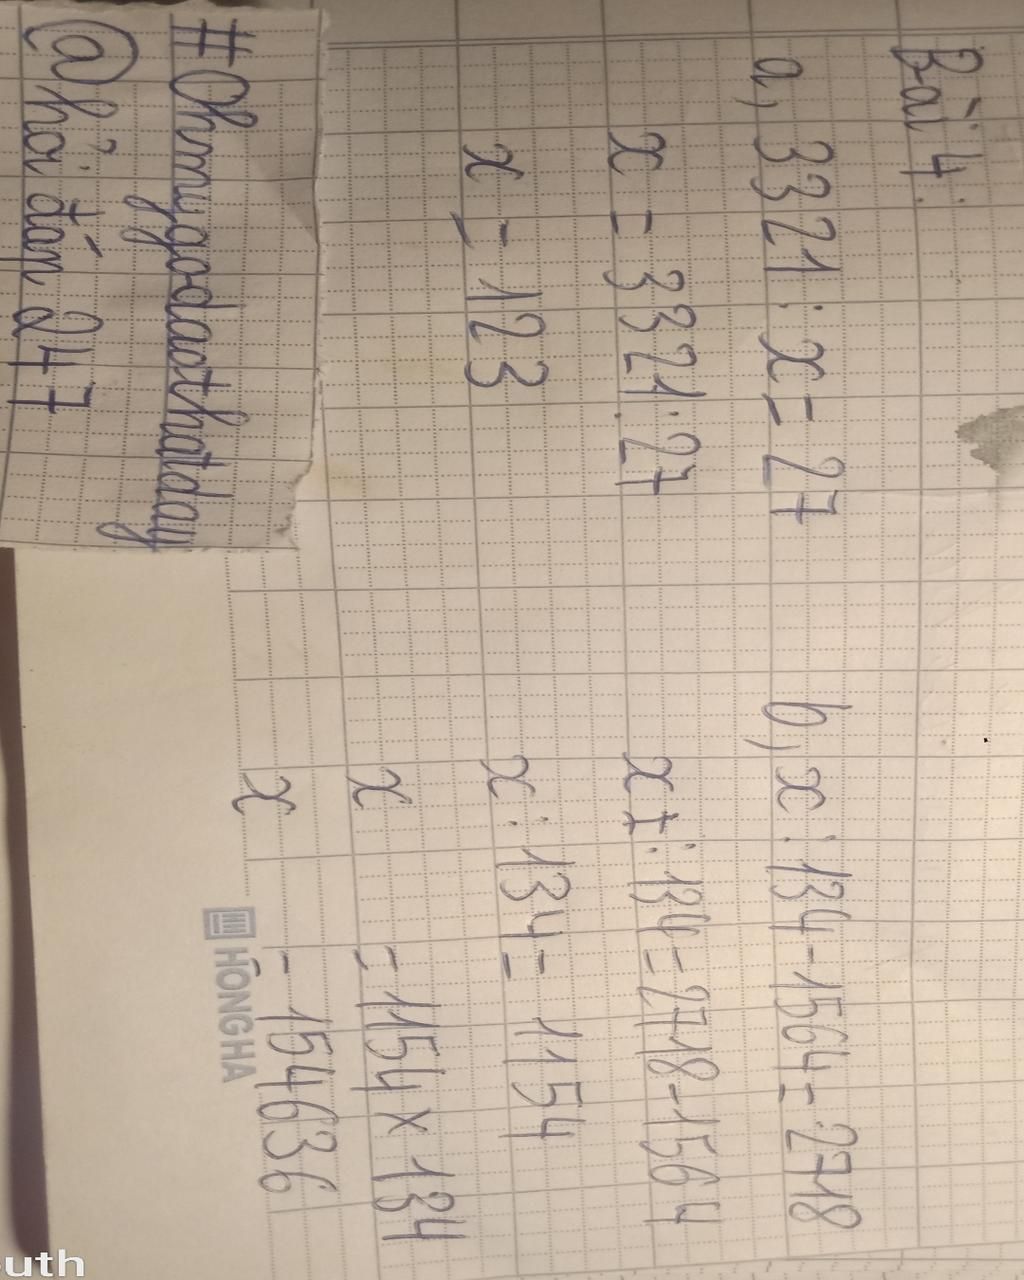 Bài 4:
a, 3321 : x = 27
x = 3321 : 27
x = 123
b, x : 134 - 1564 = 2718
x : 134 = 2718 - 1564
x : 134 = 1154
x = 1154 x 134
x = 154636
#Ohmygodaothatday
@hỏi đán 247
HỒNG HÀ
uth